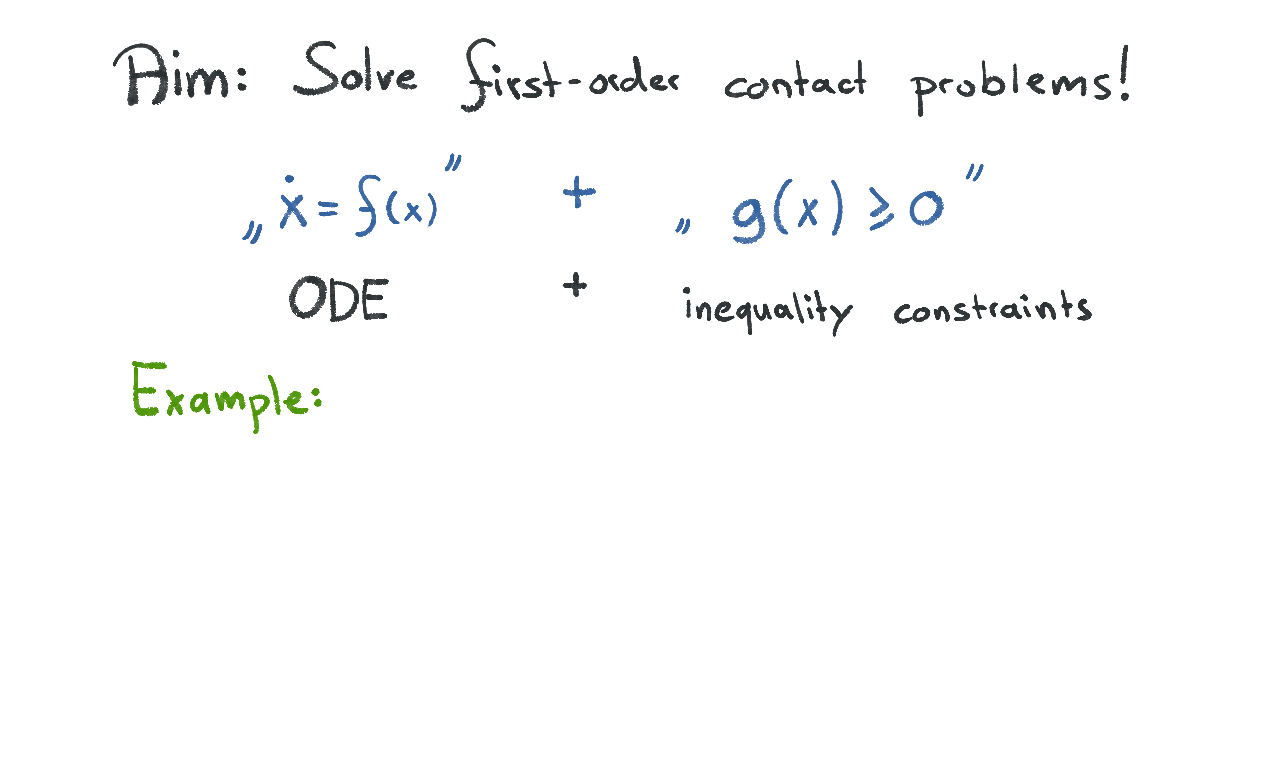 Aim: Solve first-order contact problems!
„ẋ = f(x)" + „g(x) ⩾ 0"
ODE + inequality constraints
Example: